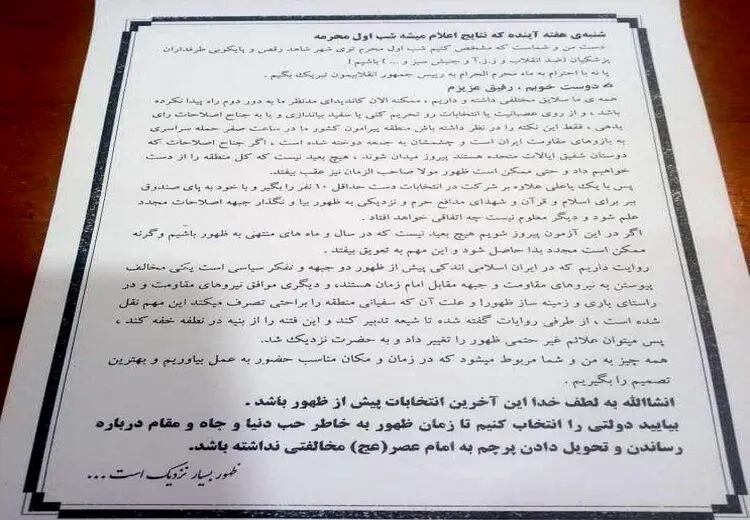 شنبه‌ی هفته آینده که نتایج اعلام میشه شب اول محرمه
دست من و شماست که مشخص کنیم شب اول محرم توی شهر شاهد رقص و پایکوبی طرفداران
پزشکیان (ضد انقلاب و ز.ز.آ و جنبش سبز و ... ) باشیم !
یا نه با احترام به ماه محرم الحرام به رییس جمهور انقلابیمون تبریک بگیم .
دوست خوبم ، رفیق عزیزم
همه ی ما سلایق مختلفی داشته و داریم ، ممکنه الان کاندیدای مدنظر ما به دور دوم راه پیدا نکرده
باشد ، و از روی عصبانیت یا انتخابات رو تحریم کنی یا سفید بیاندازی و یا به جناح اصلاحات رای
بدهی ، فقط این نکته را در نظر داشته باش منطقه پیرامون کشور ما در ساعت صفر حمله سراسری
به بازوهای مقاومت ایران است و چشمشان به جمعه دوخته شده است ، اگر جناح اصلاحات که
دوستان شفیق ایالات متحده هستند پیروز میدان شوند ، هیچ بعید نیست که کل منطقه را از دست
خواهیم داد و حتی ممکن است ظهور مولا صاحب الزمان نیز عقب بیفتد.
پس با یک یاعلی علاوه بر شرکت در انتخابات دست حداقل ۱۰ نفر را بگیر و با خود به پای صندوق
ببر برای اسلام و قرآن و شهدای مدافع حرم و نزدیکی به ظهور بیا و نگذار جبهه اصلاحات مجدد
علم شود و دیگر معلوم نیست چه اتفاقی خواهد افتاد .
اگر در این آزمون پیروز شویم هیچ بعید نیست که در سال و ماه های منتهی به ظهور باشیم وگرنه
ممکن است مجدد بدا حاصل شود و این مهم به تعویق بیفتد .
روایت داریم که در ایران اسلامی اندکی پیش از ظهور دو جبهه و تفکر سیاسی است یکی مخالف
پیوستن به نیروهای مقاومت و جبهه مقابل امام زمان هستند، و دیگری موافق نیروهای مقاومت و در
راستای یاری و زمینه ساز ظهورا و علت آن که سفیانی منطقه را براحتی تصرف میکند این مهم نقل
شده است ، از طرفی روایات گفته شده تا شیعه تدبیر کند و این فتنه را از بنیه در نطفه خفه کند ،
پس میتوان علائم غیر حتمی ظهور را تغییر داد و به حضرت نزدیک شد.
همه چیز به من و شما مربوط میشود که در زمان و مکان مناسب حضور به عمل بیاوریم و بهترین
تصمیم را بگیریم .
انشاالله به لطف خدا این آخرین انتخابات پیش از ظهور باشد .
بیایید دولتی را انتخاب کنیم تا زمان ظهور به خاطر حب دنیا و جاه و مقام درباره
رساندن و تحویل دادن پرچم به امام عصر(عج) مخالفتی نداشته باشد.
ظهور بسیار نزدیک است...